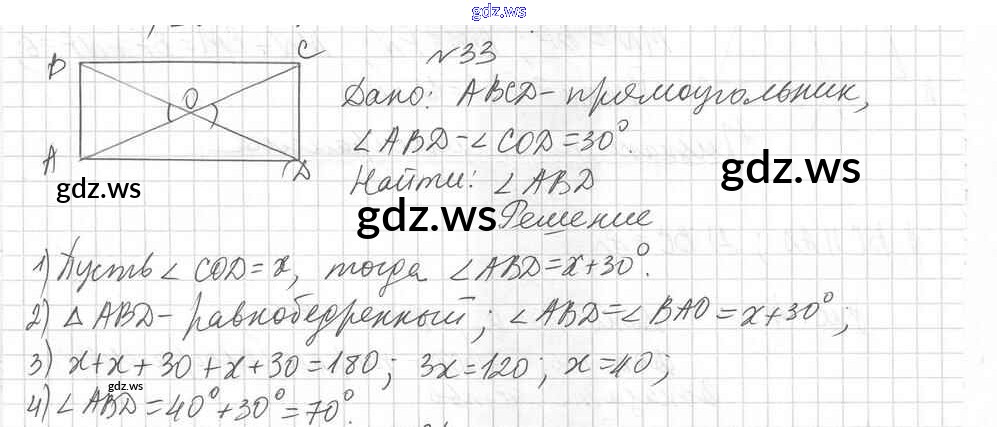 gdz.ws
№33
B C
O
A D
Дано: ABCD - прямоугольник,
∠ABD - ∠COD = 30°.
Найти: ∠ABD
gdz.ws
gdz.ws
gdz.ws
Решение
1) Пусть ∠COD = x, тогда ∠ABD = x + 30°.
2) △ABD - равнобедренный; ∠ABD = ∠BAO = x + 30°;
3) x + x + 30 + x + 30 = 180; 3x = 120; x = 40;
gdz.ws
4) ∠ABD = 40° + 30° = 70°.